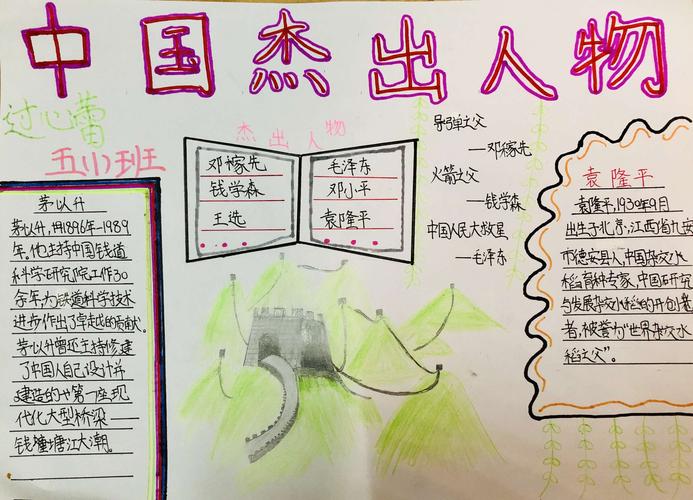 中国杰出人物
过心蕾
五(1)班
茅以升
茅以升,1896年-1989
年,他主持中国铁道
科学研究院工作30
余年,为铁道科学技术
进步作出了卓越的贡献。
茅以升曾经主持修建
了中国人自己设计并
建造的第一座现
代化大型桥梁——
钱塘江大潮。
杰出人物
邓稼先
钱学森
王选
毛泽东
邓小平
袁隆平
导弹之父
—邓稼先
火箭之父
—钱学森
中国人民大救星
—毛泽东
袁隆平
袁隆平,1930年9月
出生于北京,江西省九
市德安县人,中国杂交水
稻育种专家,中国研究
与发展杂交水稻的开创者
者,被誉为“世界杂交水
稻之父”。